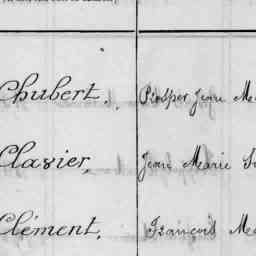 Chubert, Prosper Jean
Clavier, Jean Marie
Clément, François